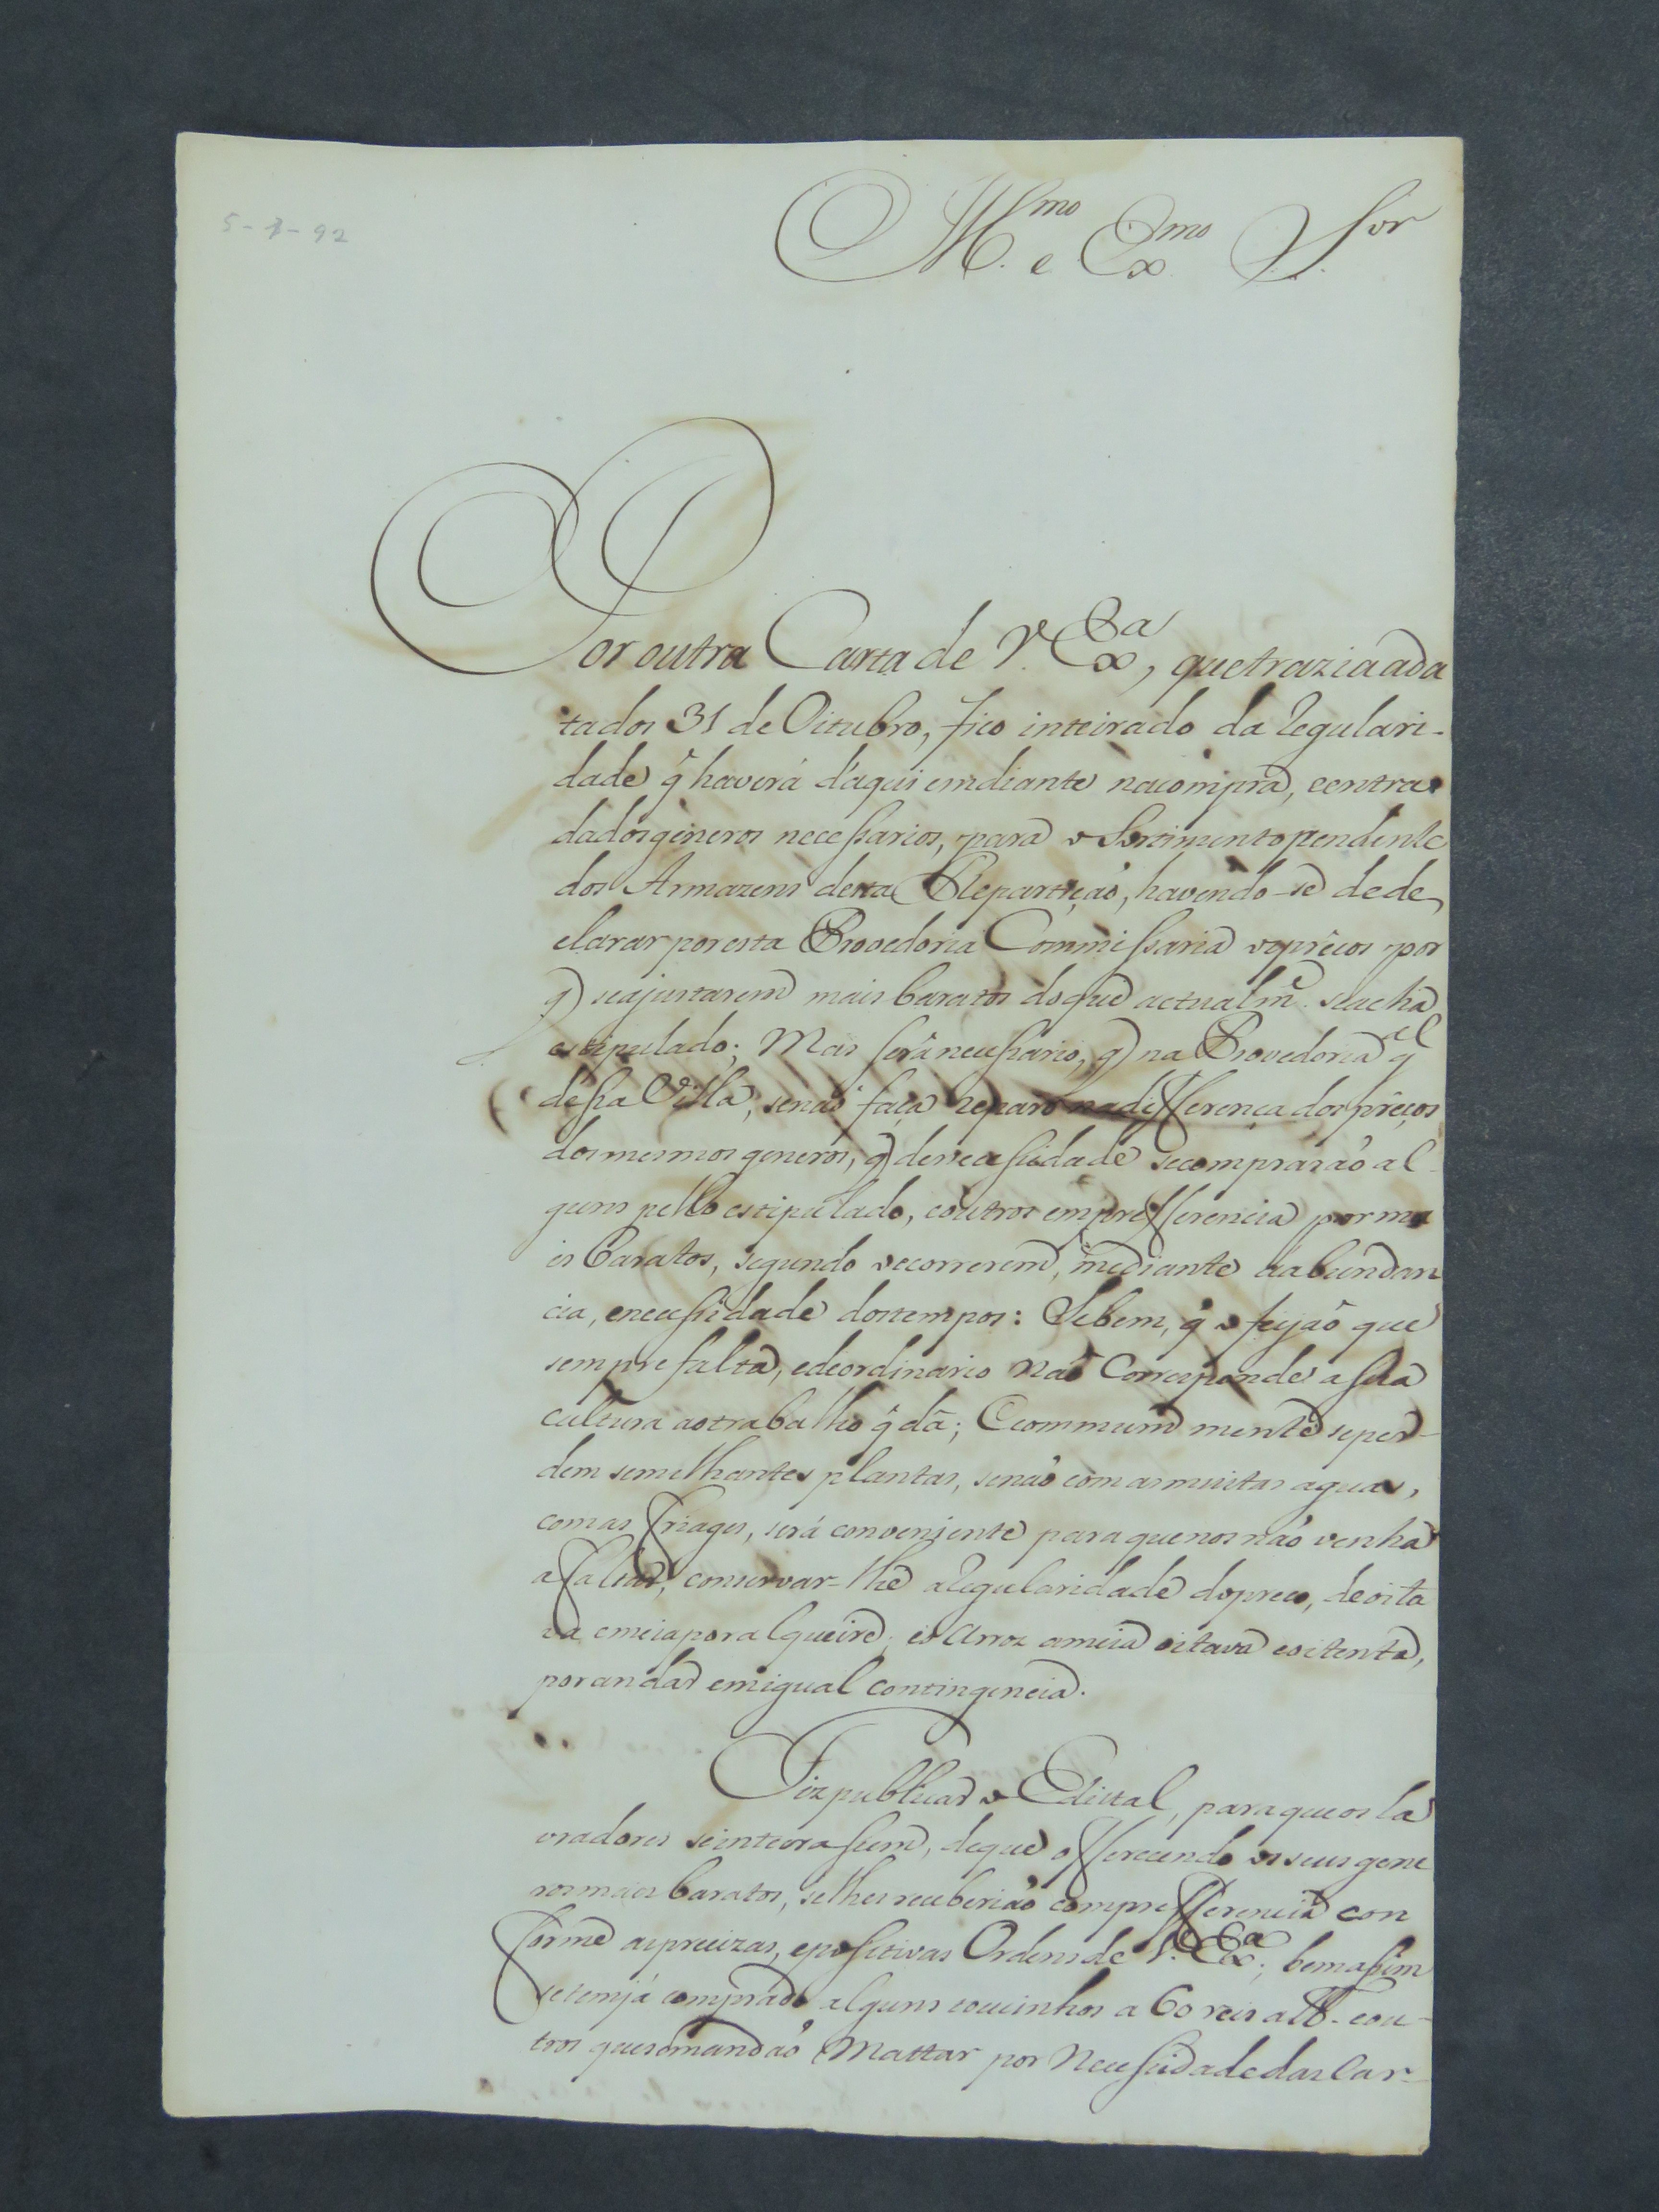 5-1-92
Ill.mo e Ex.mo S.or
Por outra Carta de V. Ex.a, que trazia a da
ta dos 31 de Oitubro, fico inteirado da regulari-
dade q̃ haverá d'aqui emdiante na compra, e entra
da dos gèneros necessarios, para o Sortimento pendente
dos Armazens desta Repartiçaõ, havendo-se de de
clarar por esta Provedoria Commissaria os prêcos por
q̃ se ajustarem mais baratos do que actualm.e se acha
estipulado; Mas será necessario, q̃ na Provedoria g.el
dessa Villa, senaõ faça reparo na differença dos prêços
dos mesmos generos, q̃ de necessidade se compraráõ al-
guns pello estipulado, e outros em prefferencia por ma
is baratos, segundo occorrerem, mediante a abundan
cia, e necessidade dos tempos: Se bem, q̃ o feijaõ que
sempre falta, e de ordinario Naõ Corresponde a sua
cultura ao trabalho q̃ dá; E commum mente se per-
dem semelhantes plantas, senaõ com as muitas aguas,
com as friages, será conveniente para que nos não venha
a faltar, conservar-lhe a regularidade do preco, de oita
va e meia por alqueire; e o Arroz a meia oitava e oitenta,
por andar em igual contingencia.
Fiz publicar o Edittal, para que os la
vradores se inteirassem, de que offerecendo os seus gene
ros mais baratos, se lhes receberiáõ com prefferencia con
forme as precizas, e possitivas Ordens de V. Ex.a; bem assim
se tem já comprado alguns toucinhos a 60 reis a lb. e ou-
tros que se mandaõ Mattar por Necessidade das Car-